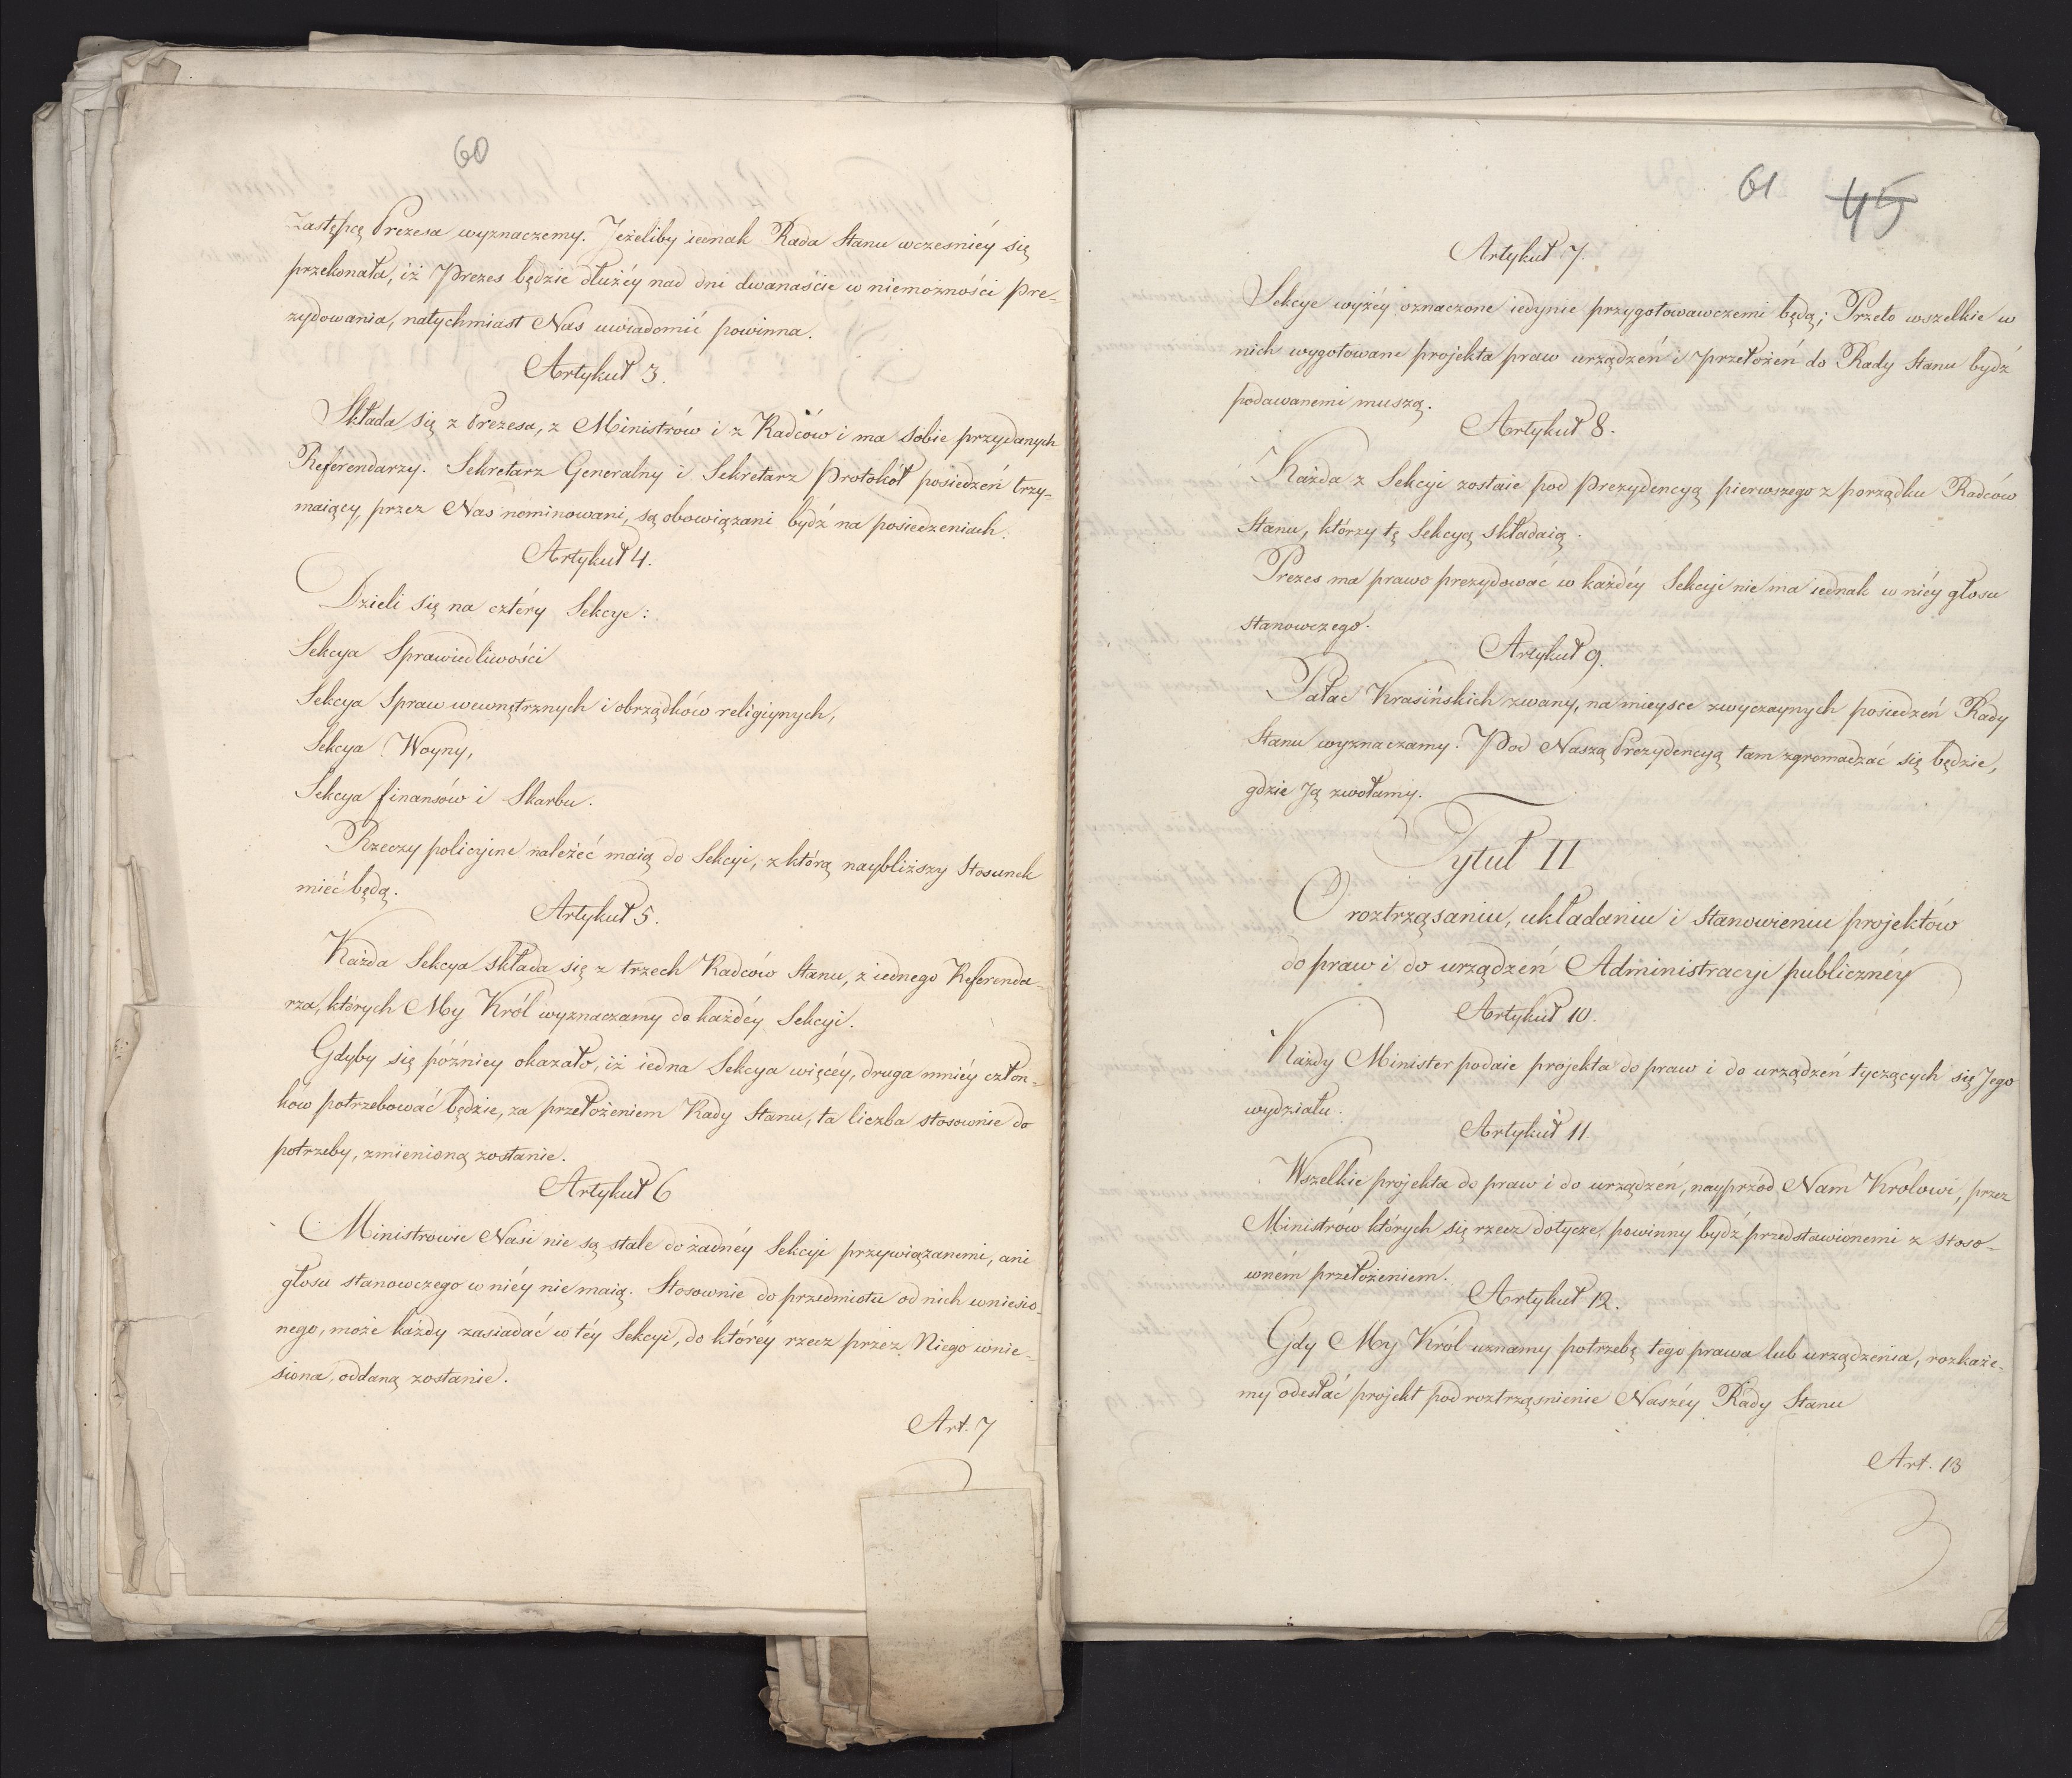 60
zastępcę Prezesa wyznaczemy. Jeżeliby iednak Rada Stanu wcześniéy się
przekonała, iż Prezes będzie dłużéy nad dni dwanaście w niemożności pre-
zydowania, natychmiast Nas uwiadomić powinna.
Artykuł 3.
Składa się z Prezesa, z Ministrów i z Radców i ma sobie przydanych
Referendarzy. Sekretarz Generalny i Sekretarz Protokół posiedzeń trzy-
maiący, przez Nas nominowani, są obowiązani bydź na posiedzeniach.
Artykuł 4.
Dzieli się na cztéry Sekcye:
Sekcya Sprawiedliwości
Sekcya Spraw wewnętrznych i obrządków religiynych,
Sekcya Woyny,
Sekcya finansów i Skarbu.
Rzeczy policyine należéć maią do Sekcyi, z którą naybliższy Stosunek
miéć będą.
Artykuł 5.
Każda Sekcya składa się z trzech Radców Stanu, z iednego Referenda-
rza, których My Król wyznaczamy do każdéy Sekcyi.
Gdyby się późniey okazało, iż iedna Sekcya więcéy, druga mniéy człon-
ków potrzebować będzie, za przełożeniem Rady Stanu, ta liczba stosownie do
potrzeby, zmienioną zostanie.
Artykuł 6
Ministrowie Nasi nie są stale do żadnéy Sekcyi przywiązanemi, ani
głosu stanowczego w niéy nie maią. Stosownie do przedmiotu od nich wniesio-
nego, może każdy zasiadać w téy Sekcyi, do któréy rzecz przez Niego wnie-
siona, oddaną zostanie.
Art. 7
61 45
Artykuł 7.
Sekcye wyżéy oznaczone iedynie przygotowawczemi będą; Przeto wszelkie w
nich wygotowane projekta praw urządzeń i przełożeń do Rady Stanu bydź
podawanemi muszą.
Artykuł 8.
Każda z Sekcyi zostaie pod Prezydencyą pierwszego z porządku Radców
Stanu, którzy tę Sekcyą składaią.
Prezes ma prawo prezydować w każdéy Sekcyi nie ma iednak w niéy głosu
stanowczego.
Artykuł 9.
Pałac Krasińskich zwany, na mieysce zwyczaynych posiedzeń Rady
Stanu wyznaczamy. Pod Naszą Prezydencyą tam zgromadzać się będzie,
gdzie Ją zwołamy.
Tytuł II
O roztrząsaniu, układaniu i stanowieniu projektów
do praw i do urządzeń Administracyi publicznéy
Artykuł 10.
Każdy Minister podaie projekta do praw i do urządzeń tyczących się Jego
wydziału.
Artykuł 11.
Wszelkie projekta do praw i do urządzeń, nayprzód Nam Królowi, przez
Ministrów których się rzecz dotycze, powinny bydź przedstawionemi z stoso-
wném przełożeniem.
Artykuł 12.
Gdy My Król uznamy potrzebę tego prawa lub urządzenia, rozkaże-
my odesłać projekt pod roztrząśnienie Naszéy Rady Stanu
Art. 13